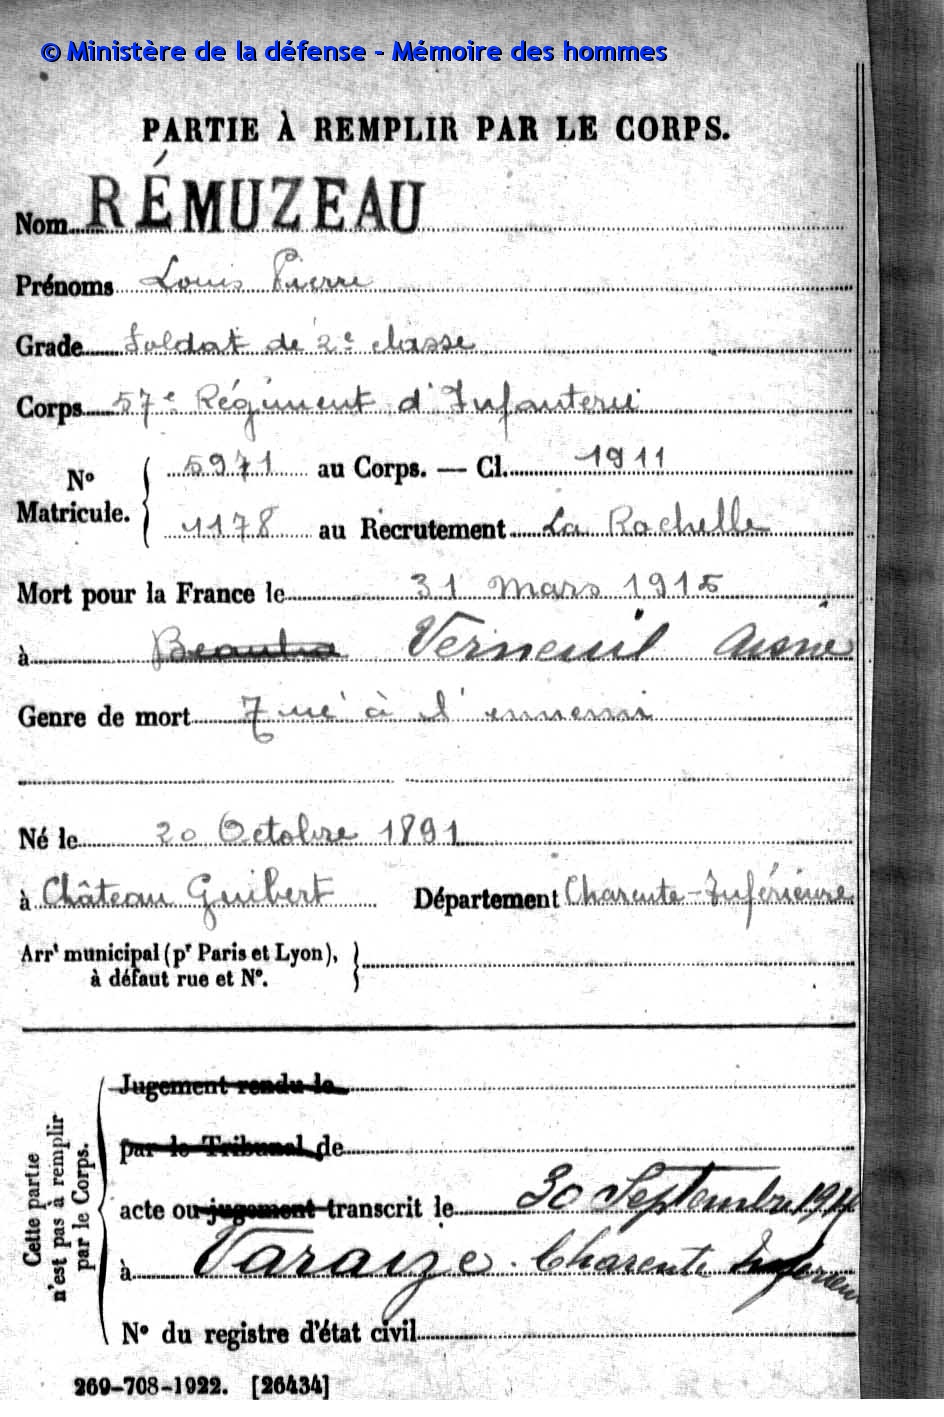 © Ministère de la défense - Mémoire des hommes
PARTIE À REMPLIR PAR LE CORPS.
Nom RÉMUZEAU
Prénoms Louis Pierre
Grade Soldat de 2e classe
Corps 57e Régiment d'Infanterie
No Matricule. { 5971 au Corps. — Cl. 1911
1178 au Recrutement La Rochelle
Mort pour la France le 31 mars 1915
à Verneuil Aisne
Genre de mort Tué à l'ennemi
Né le 20 Octobre 1891
à Château Guibert Département Charente-Inférieure
Arrt municipal (pr Paris et Lyon), }
à défaut rue et No.
Cette partie n'est pas à remplir par le Corps.
Jugement rendu le
par le Tribunal de
acte ou jugement transcrit le 30 Septembre
à Varaize. Charente Inférieure
No du registre d'état civil
269-708-1922. [26434]